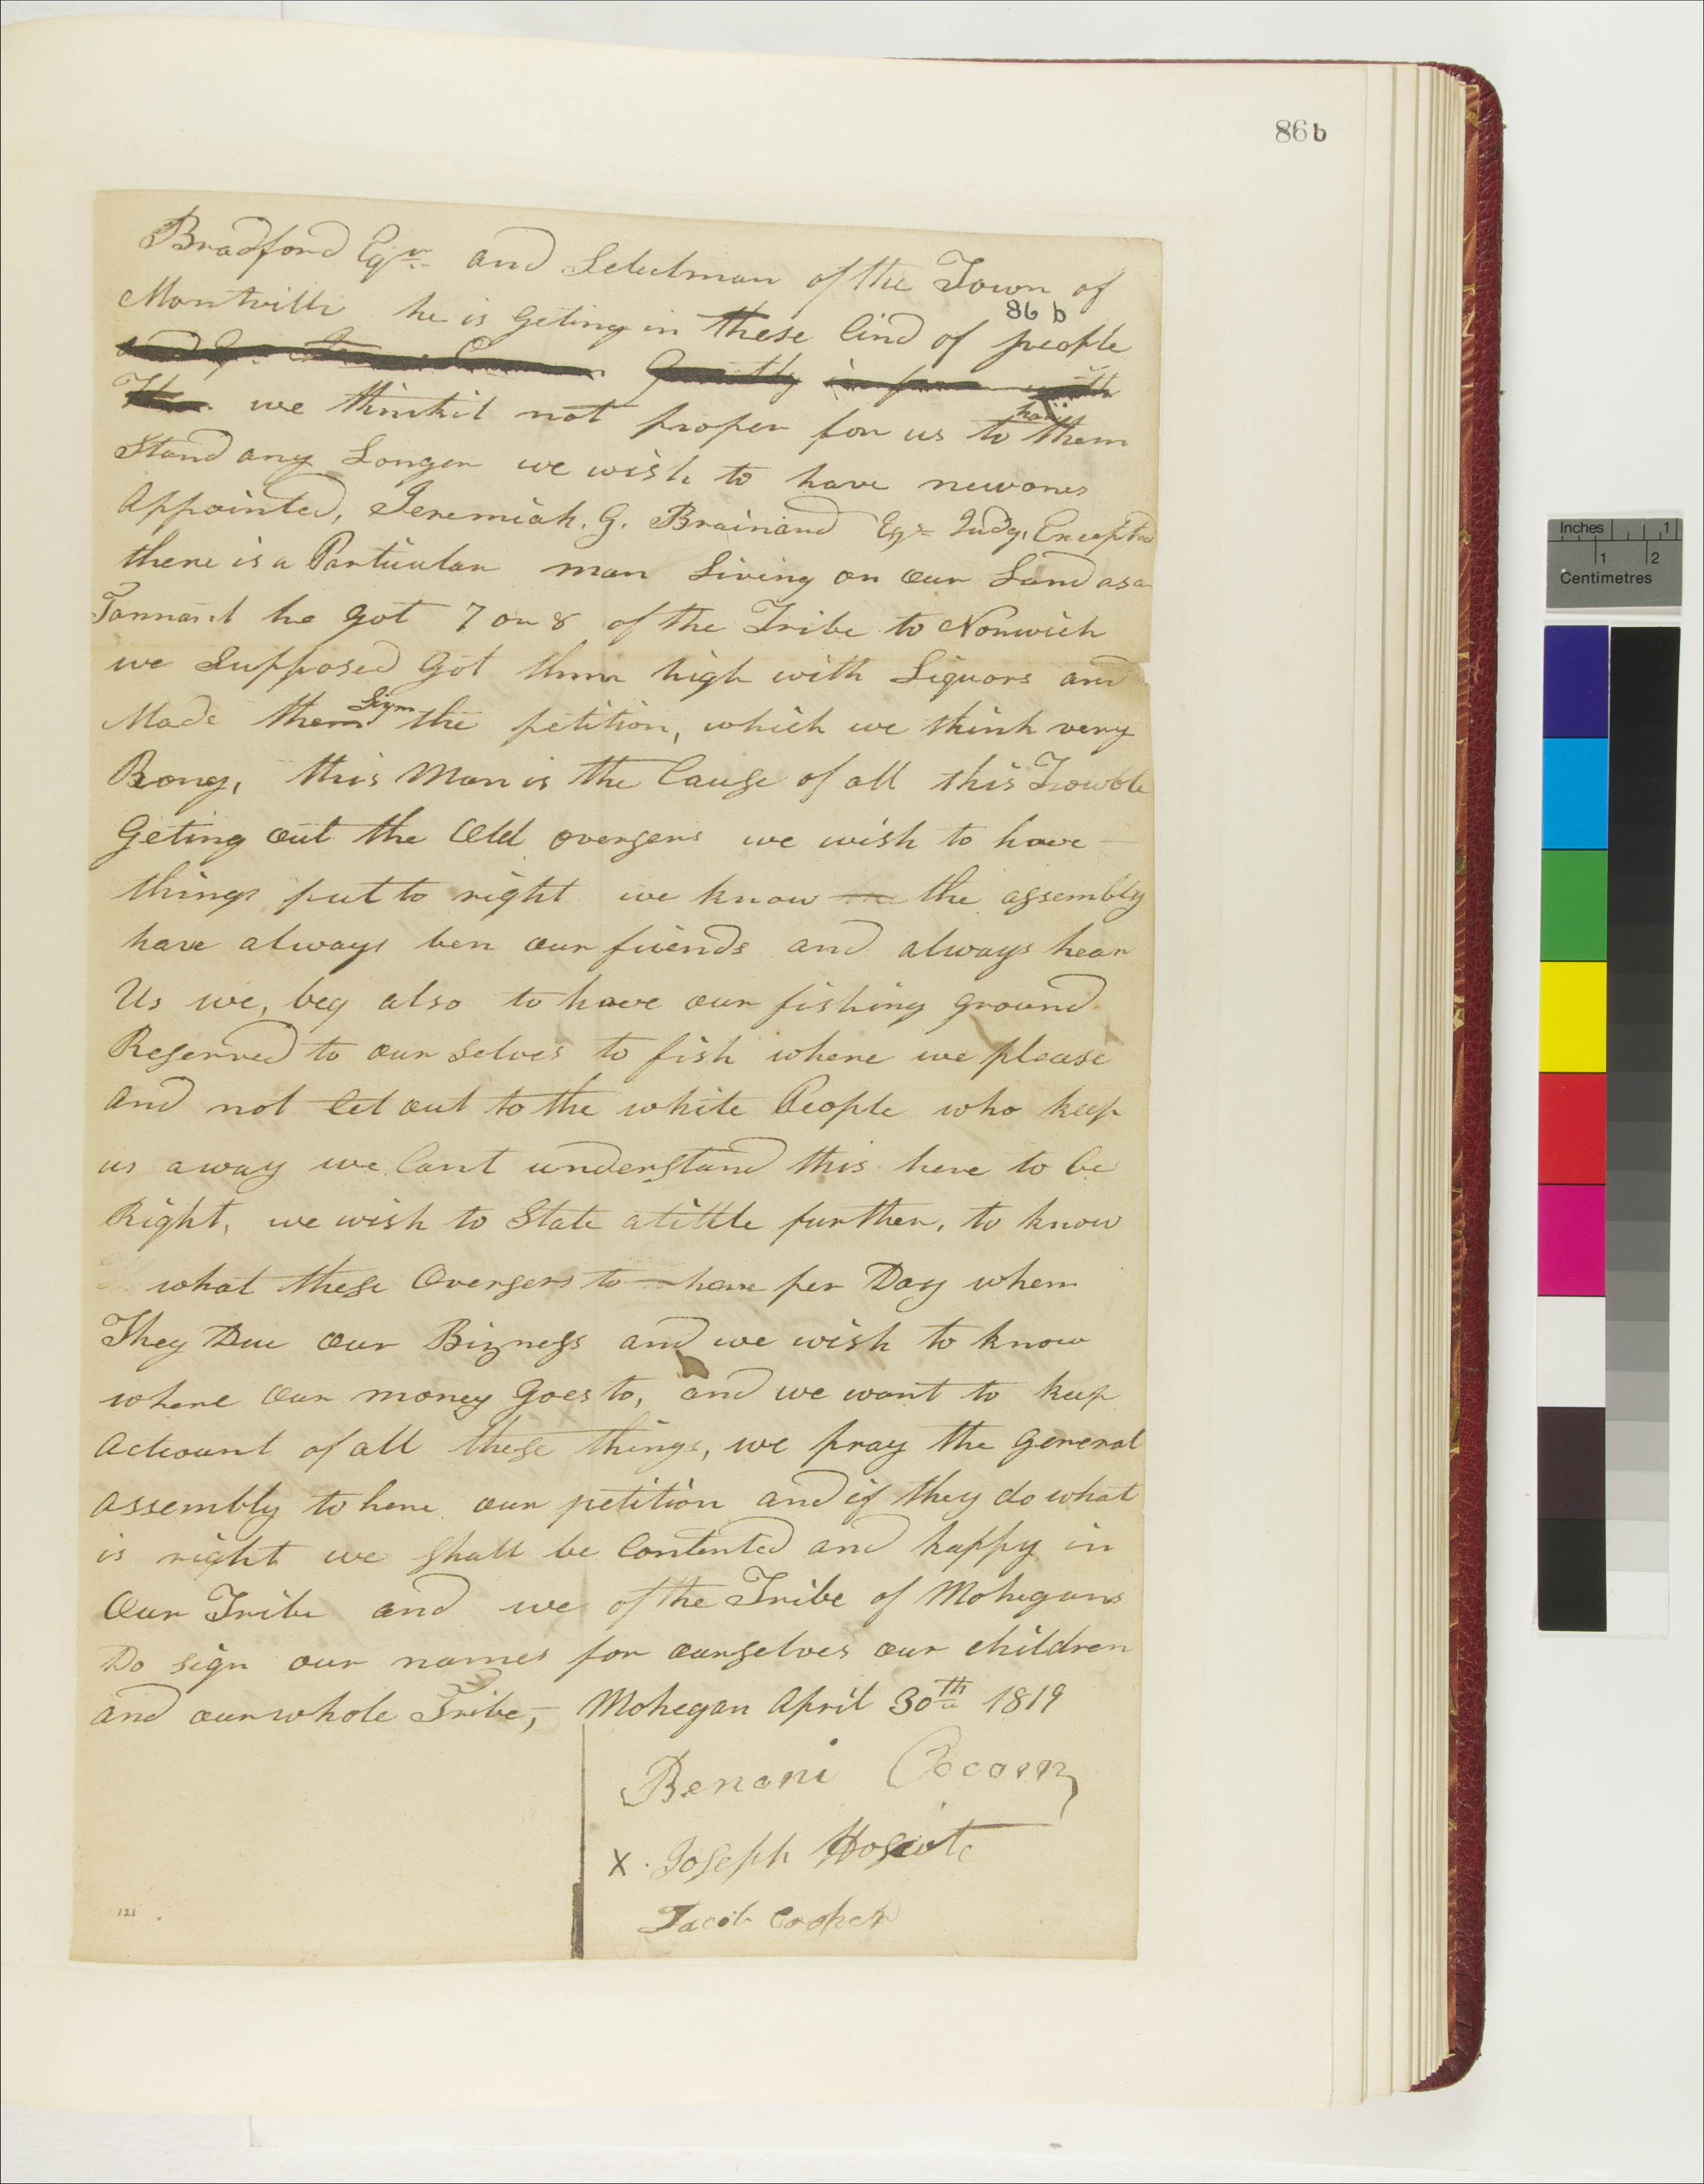 86b
Bradford Esqr. and Selectman of the Town of
86 b
Montville he is Geting in these Cind of people
we thinkit not proper for us to have them
Stand any Longer we wish to have new ones
Appointed, Jeremiah. G. Brainard Esqr Judg, Excepted
there is a Particular man Living on our Land as a
Tannant he got 7 or 8 of the Tribe to Norwich
we Supposed Got them high with Liquors and
Made them Sign the petition, which we think very
Rong, this Man is the Cause of all this Trowble
Geting out the Old oversers we wish to have
things put to right we know the assembly
have always ben our friends and always hear
Us we, beg also to have our fishing ground
Reserved to our selves to fish where we please
and not Let out to the white People who keep
us away we Cant understand this here to be
Right, we wish to State a little further, to know
what these Oversers to have per Day when
They Due our Bizness and we wish to know
where our money Goes to, and we want to keep
Account of all these things, we pray the General
assembly to here our petition and if they do what
is right we Shall be Contented and happy in
Our Tribe and we of the Tribe of Mohegans
Do sign our names for ourselves our children
and our whole Tribe, — Mohegan April 30th 1819
Benoni Occom
X Joseph
Jacob Cooper
121
Inches 1
1 2
Centimetres